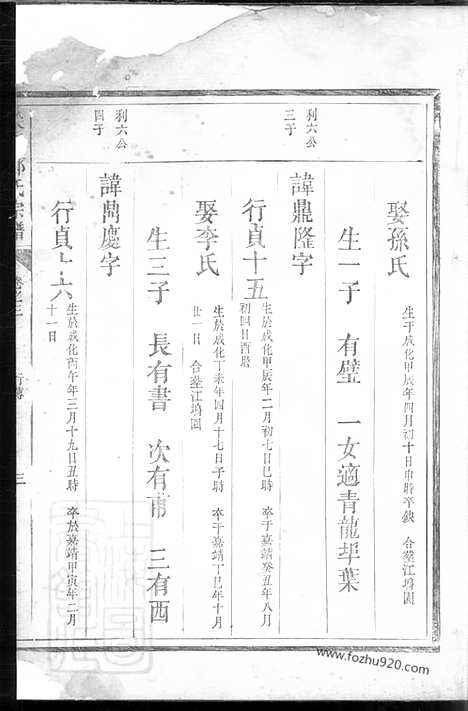 娶孫氏
生于成化甲辰年四月初十日申時卒缺 合塟江塢園
生一子 有璧 一女適青龍埠葉
利六公
三子
諱鼎隆字
行貞十五
生於成化甲辰年二月初七日巳時 卒于嘉靖癸丑年八月
初四日酉時
娶李氏
生於成化丁未年四月十七日子時 卒于嘉靖丁巳年十月
廿一日 合塟江塢園
生三子 長有書 次有甫 三有西
利六公
四子
諱鼎慶字
行貞十六
生於成化丙午年三月十九日丑時 卒於嘉靖甲寅年二月
十一日
氏宗譜
卷之三
行傳
三
www.fozhu920.com